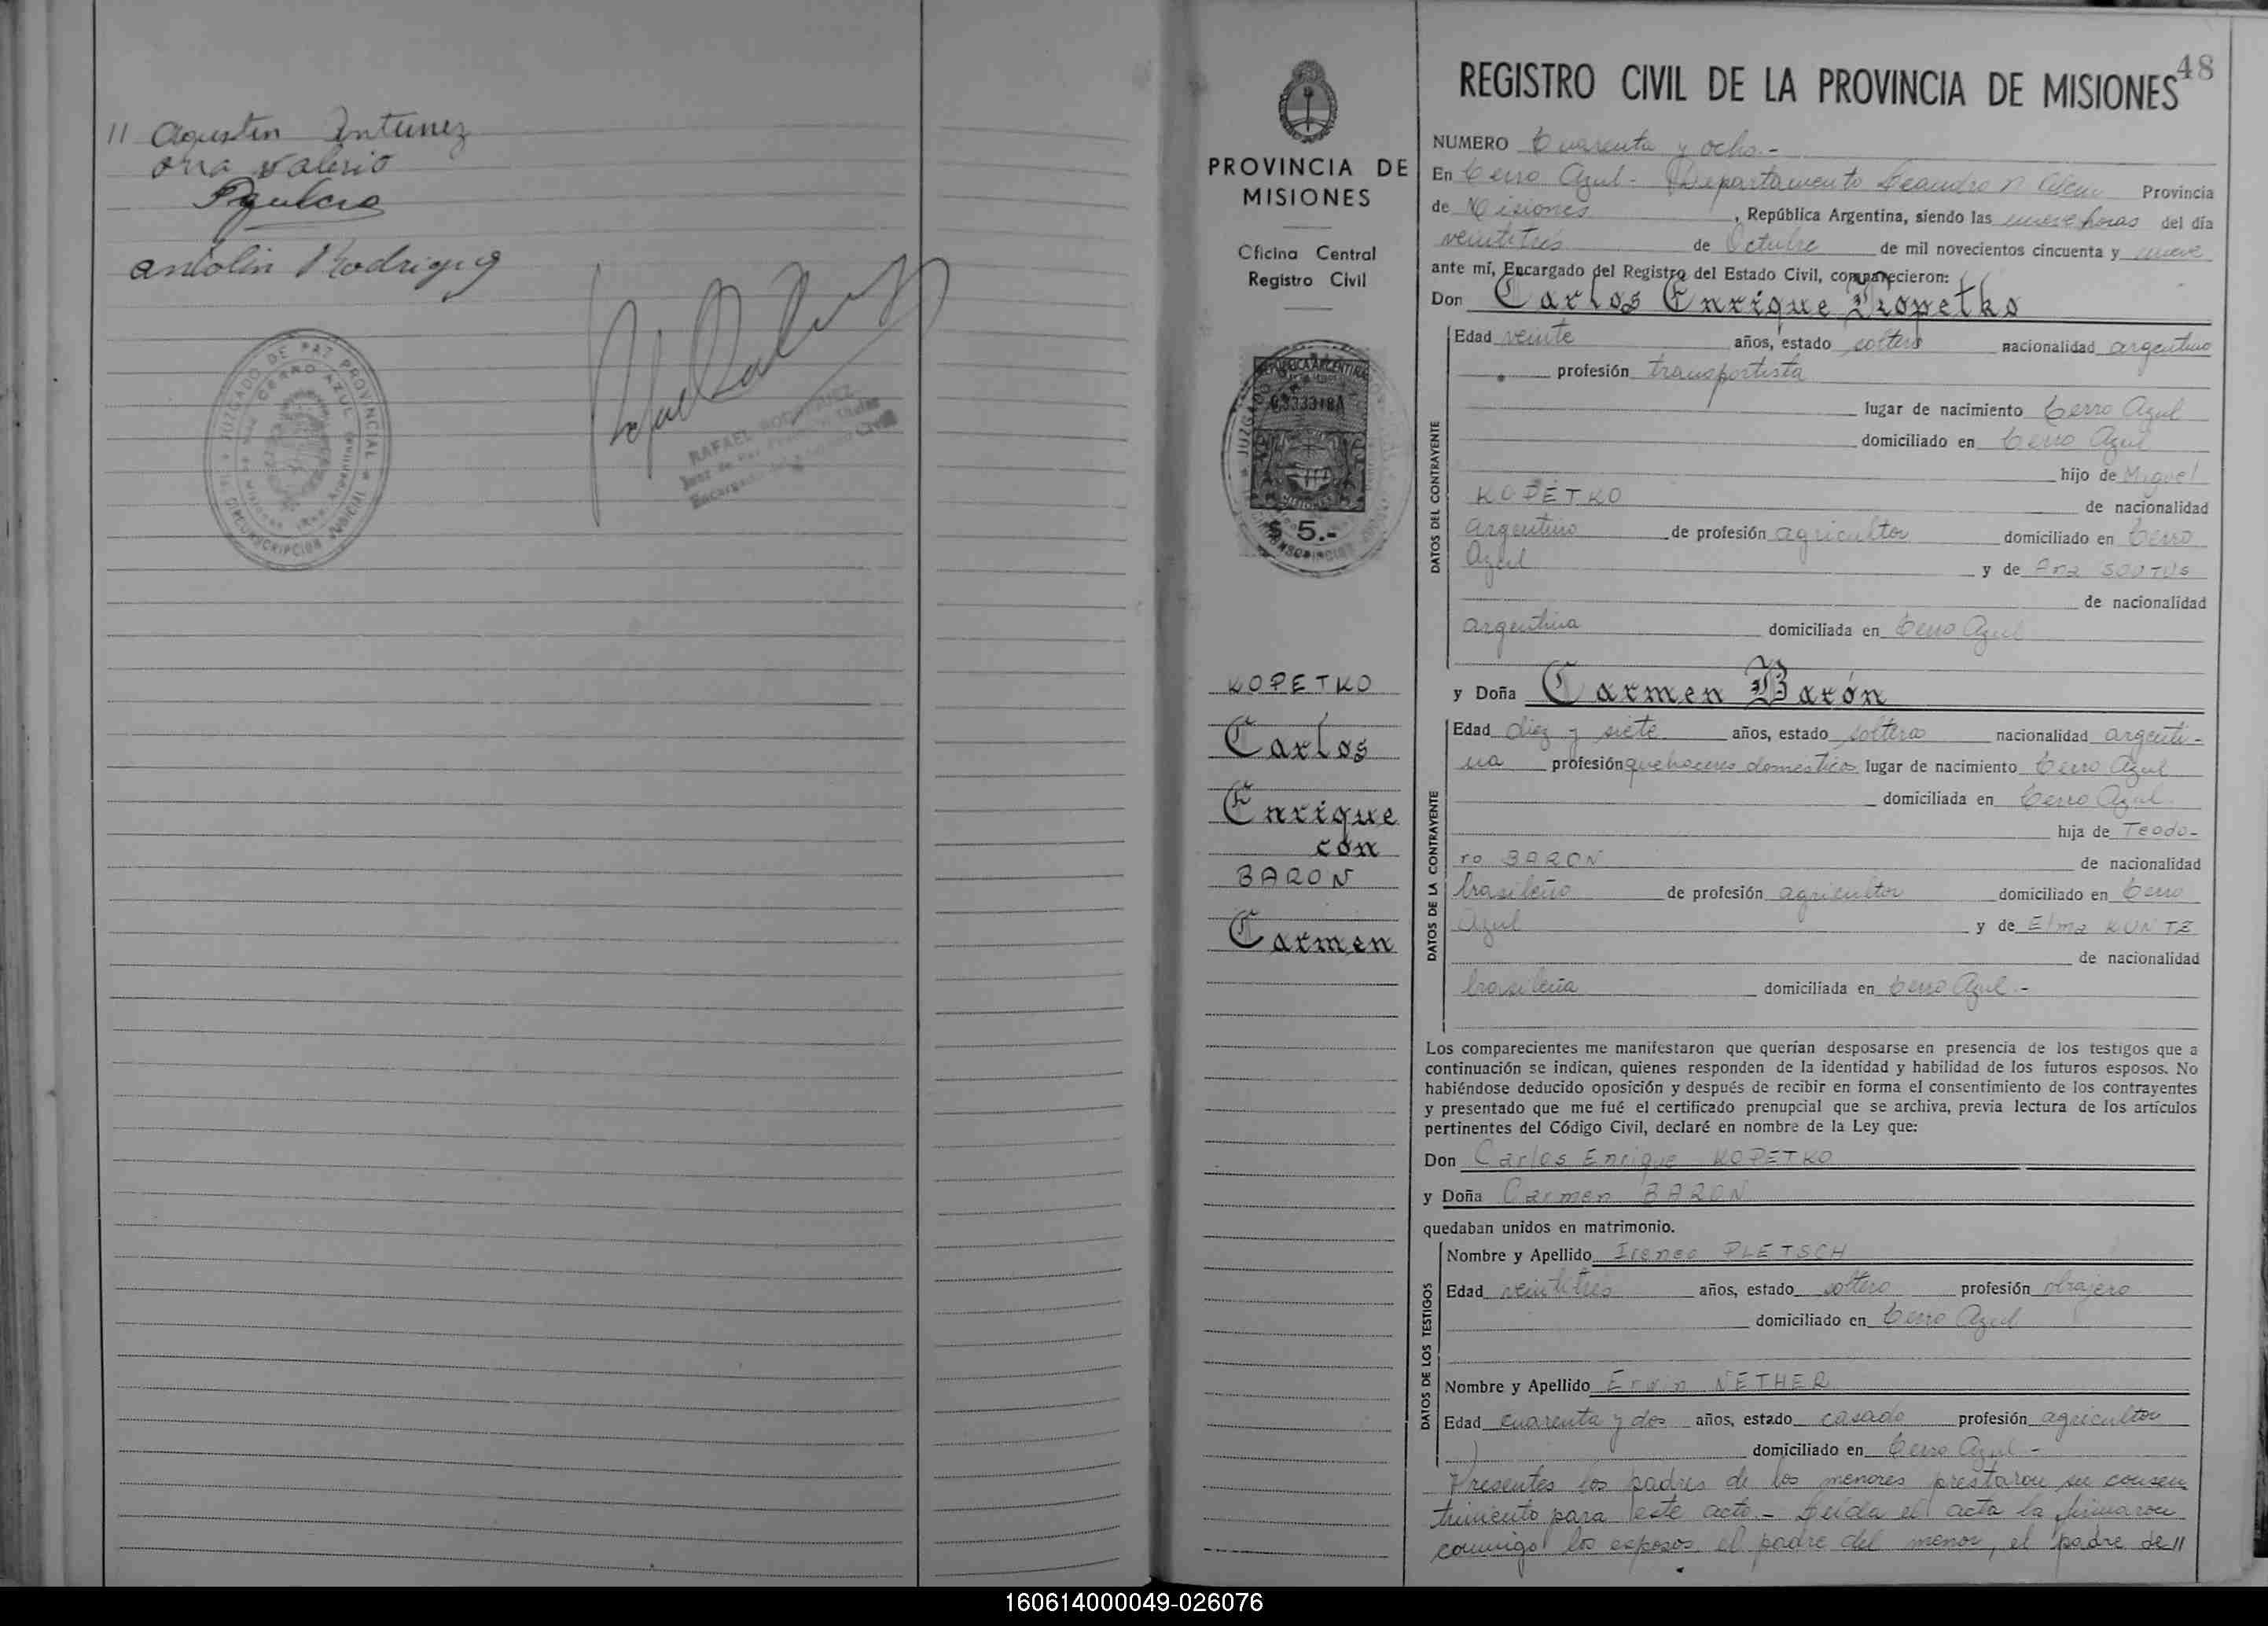 11 Agustin Antunez
ona valirio
Antolin Rodriguez
JUZGADO DE PAZ PROVINCIAL
CERRO AZUL
CIRCUNSCRIPCION JUDICIAL
RAFAEL RODRIGUEZ
Juez de Paz
Encargado
Civil
PROVINCIA DE
MISIONES
Oficina Central
Registro Civil
REPUBLICA ARGENTINA
0333318A
MISIONES
$ 5.-
KOPETKO
Carlos
Enrique
con
BARON
Carmen
48
REGISTRO CIVIL DE LA PROVINCIA DE MISIONES
NUMERO Cuarenta y ocho.-
En Cerro Azul - Departamento Leandro N Alem Provincia
de Misiones, República Argentina, siendo las nueve horas del día
veintitres de Octubre de mil novecientos cincuenta y nueve
ante mí, Encargado del Registro del Estado Civil, comparecieron:
Don Carlos Enrique Kopetko
DATOS DEL CONTRAYENTE
Edad veinte años, estado soltero nacionalidad argentino
profesión transportista
lugar de nacimiento Cerro Azul
domiciliado en Cerro Azul
hijo de Miguel
KOPETKO de nacionalidad
argentino de profesión agricultor domiciliado en Cerro
Azul y de Ana SOUTUS
de nacionalidad
argentina domiciliada en Cerro Azul
y Doña Carmen Barón
DATOS DE LA CONTRAYENTE
Edad diez y siete años, estado soltera nacionalidad argenti-
na profesión quehaceres domesticos lugar de nacimiento Cerro Azul
domiciliada en Cerro Azul
hija de Teodo-
ro BARON de nacionalidad
brasileño de profesión agricultor domiciliado en Cerro
Azul y de Elma KUNTZ
de nacionalidad
brasileña domiciliada en Cerro Azul.-
Los comparecientes me manifestaron que querían desposarse en presencia de los testigos que a
continuación se indican, quienes responden de la identidad y habilidad de los futuros esposos. No
habiéndose deducido oposición y después de recibir en forma el consentimiento de los contrayentes
y presentado que me fué el certificado prenupcial que se archiva, previa lectura de los artículos
pertinentes del Código Civil, declaré en nombre de la Ley que:
Don Carlos Enrique KOPETKO
y Doña Carmen BARON
quedaban unidos en matrimonio.
DATOS DE LOS TESTIGOS
Nombre y Apellido Ireneo PLETSCH
Edad veintitres años, estado soltero profesión obrajero
domiciliado en Cerro Azul
Nombre y Apellido Erwin NETHER
Edad cuarenta y dos años, estado casado profesión agricultor
domiciliado en Cerro Azul -
Presentes los padres de los menores prestaron su consen
timiento para este acto.- Leida el acta la firmaron
conmigo los esposos, el padre del menor, el padre de 11
160614000049-026076